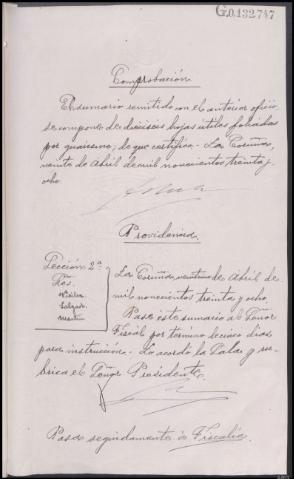 G.0.132.747
Comprobación
El sumario remitido con el anterior oficio
se compone de dieciseis hojas útiles foliadas
por guarismo; de que certifico. - La Coruña,
veinte de Abril de mil novecientos treinta y
ocho.
Providencia
Sección 2ª
Sres.
Salgado
La Coruña, veintiuno de Abril de
mil novecientos treinta y ocho.
Pase este sumario al Señor
Fiscal por término de cinco días
para instrucción. - Lo acordó la Sala y ru-
brica el Señor Presidente.
Pasa seguidamente a Fiscalía.